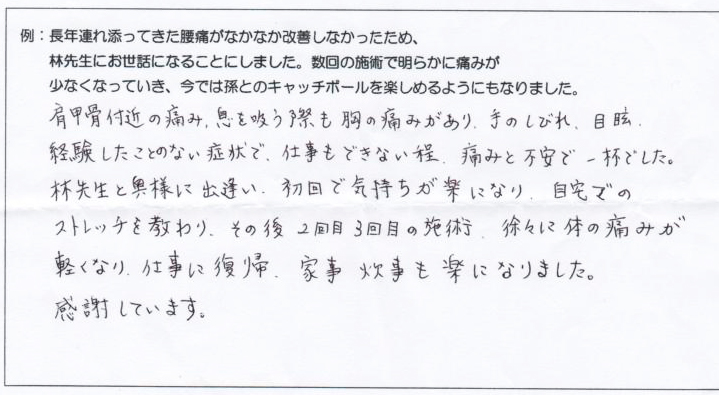 例：長年連れ添ってきた腰痛がなかなか改善しなかったため、
林先生にお世話になることにしました。数回の施術で明らかに痛みが
少なくなっていき、今では孫とのキャッチボールを楽しめるようにもなりました。
肩甲骨付近の痛み、息を吸う際も胸の痛みがあり、手のしびれ、目眩、
経験したことのない症状で、仕事もできない程、痛みと不安で一杯でした。
林先生と奥様に出逢い、初回で気持ちが楽になり、自宅での
ストレッチを教わり、その後2回目3回目の施術、徐々に体の痛みが
軽くなり、仕事に復帰、家事炊事も楽になりました。
感謝しています。